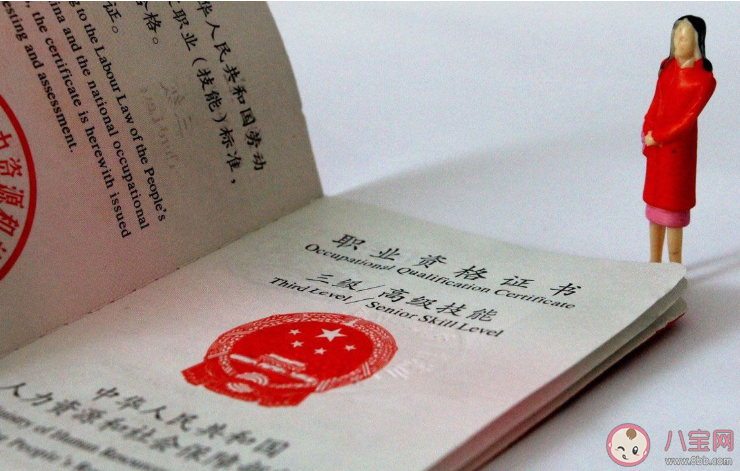 华人民共和国劳动
职业(技能)标准,
格。
证。
to the Labour Law of the People's
and the national occupational
the certificate is herewith issued
and assessment.
资源和
职业资格证书
Occupational Qualification Certificate
三级/高级技能
Third Level / Senior Skill Level
中华人民共和国
人力资源和社会保障
of Human
八宝网
www.8bb.com